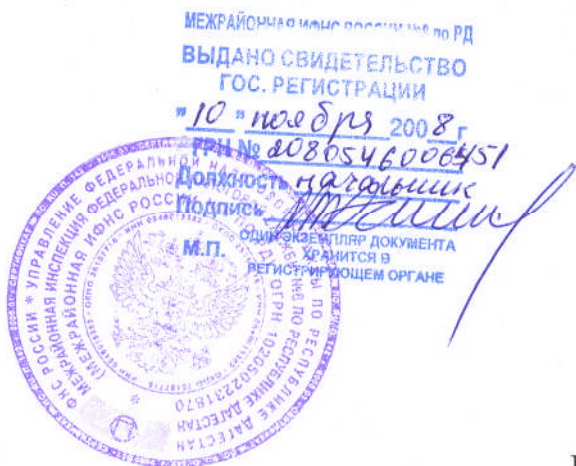 МЕЖРАЙОННАЯ ИФНС РОССИИ №6 по РД
ВЫДАНО СВИДЕТЕЛЬСТВО
ГОС. РЕГИСТРАЦИИ
"10" ноября 2008 г
ГРН № 2080546006451
Должность начальник
Подпись
М.П.
ОДИН ЭКЗЕМПЛЯР ДОКУМЕНТА
ХРАНИТСЯ В
РЕГИСТРИРУЮЩЕМ ОРГАНЕ
ФНС РОССИИ * УПРАВЛЕНИЕ ФЕДЕРАЛЬНОЙ НАЛОГОВОЙ СЛУЖБЫ ПО РЕСПУБЛИКЕ ДАГЕСТАН
МЕЖРАЙОННАЯ ИНСПЕКЦИЯ ФЕДЕРАЛЬНОЙ НАЛОГОВОЙ СЛУЖБЫ №6 ПО РЕСПУБЛИКЕ ДАГЕСТАН
(МЕЖРАЙОННАЯ ИФНС РОССИИ
ОГРН 1020502231870